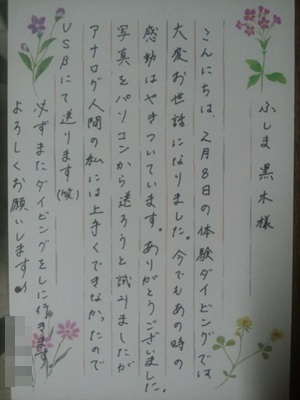 ふしま 黒木様
こんにちは、2月8日の体験ダイビングでは
大変お世話になりました。今でもあの時の
感動はやきついています。ありがとうございました。
写真をパソコンから送ろうと試みましたが
アナログ人間の私には上手くできなかったので
USBにて送ります(笑)
必ずまたダイビングをしに行きます。
よろしくお願いします